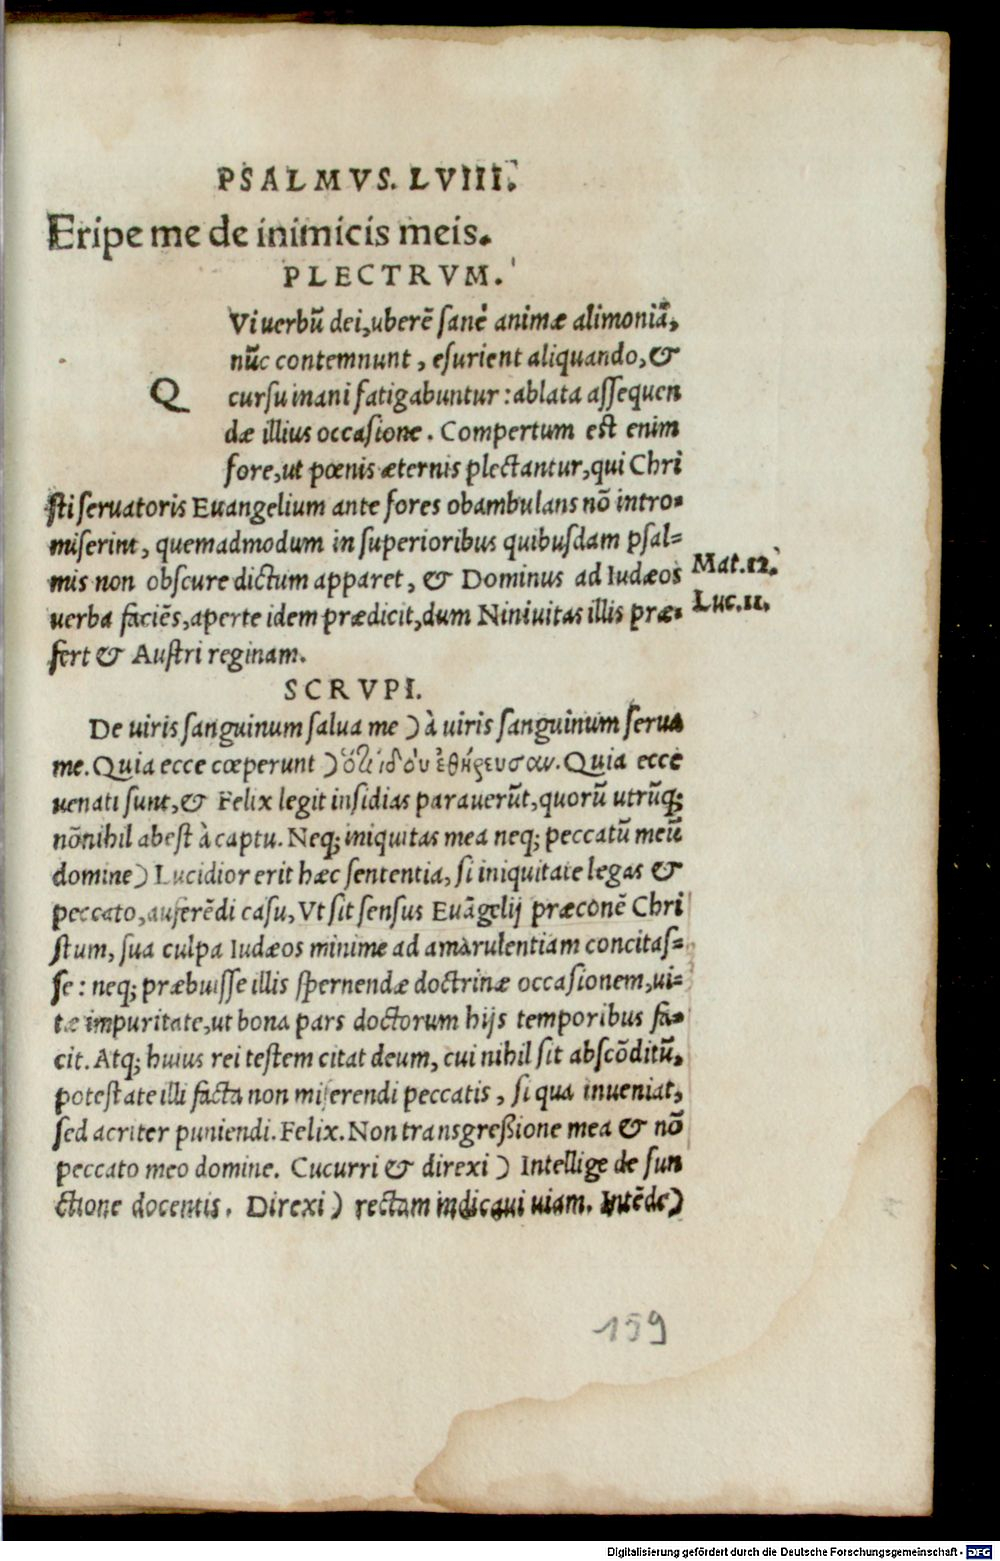 PSALMVS. LVIII.
Eripe me de inimicis meis.
PLECTRVM.
Q Vi uerbū dei, uberē sanè animæ alimoniā,
nūc contemnunt, esurient aliquando, &
cursu inani fatigabuntur: ablata assequen
dæ illius occasione. Compertum est enim
fore, ut pœnis æternis plectantur, qui Chri
sti seruatoris Euangelium ante fores obambulans nō intro-
miserint, quemadmodum in superioribus quibusdam psal=
mis non obscure dictum apparet, & Dominus ad Iudæos
Mat.12.
uerba faciēs, aperte idem prædicit, dum Niniuitas illis præ-
Luc.11.
fert & Austri reginam.
SCRVPI.
De uiris sanguinum salua me ) à uiris sanguinum serua
me. Quia ecce cœperunt ) ὅτι ἰδοὺ ἐθήρευσαν. Quia ecce
uenati sunt, & Felix legit insidias parauerūt, quorū utrūq;
nōnihil abest à captu. Neq; iniquitas mea neq; peccatū meū
domine ) Lucidior erit hæc sententia, si iniquitate legas &
peccato, auferēdi casu, Vt sit sensus Euāgelij præconē Chri
stum, sua culpa Iudæos minime ad amarulentiam concitas=
se: neq; præbuisse illis spernendæ doctrinæ occasionem, ui=
tæ impuritate, ut bona pars doctorum hijs temporibus fa-
cit. Atq; huius rei testem citat deum, cui nihil sit abscōditū,
potestate illi facta non miserendi peccatis, si qua inueniat,
sed acriter puniendi. Felix. Non transgreßione mea & nō
peccato meo domine. Cucurri & direxi ) Intellige de fun
ctione docentis. Direxi ) rectam indicaui uiam. Intēde )
159
Digitalisierung gefördert durch die Deutsche Forschungsgemeinschaft - DFG